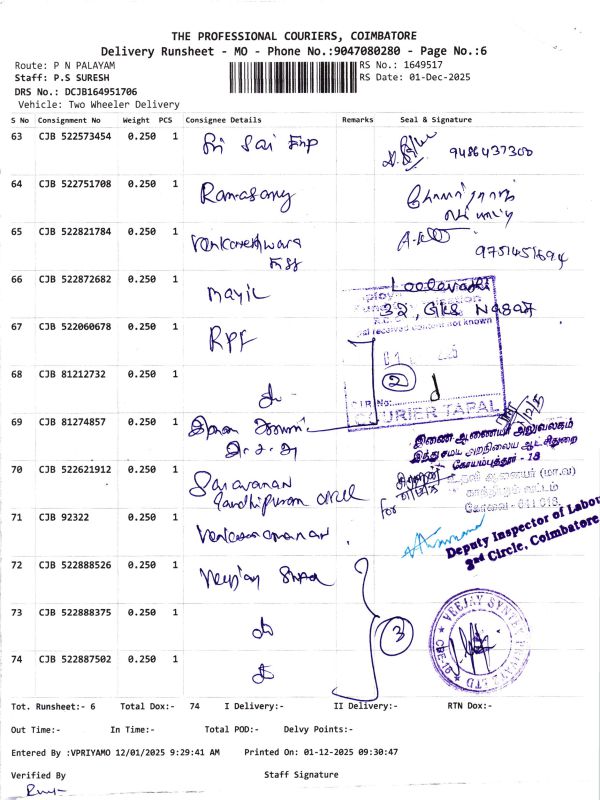 THE PROFESSIONAL COURIERS, COIMBATORE
Delivery Runsheet - MO - Phone No.:9047080280 - Page No.:6
Route: P N PALAYAM
RS No.: 1649517
Staff: P.S SURESH
RS Date: 01-Dec-2025
DRS No.: DCJB164951706
Vehicle: Two Wheeler Delivery
S No Consignment No Weight PCS Consignee Details Remarks Seal & Signature
63 CJB 522573454 0.250 1 Sri Sai Enp 9486437300
64 CJB 522751708 0.250 1 Ramasamy
65 CJB 522821784 0.250 1 A.
66 CJB 522872682 0.250 1 Mayil
32, GKS Nagar
67 CJB 522060678 0.250 1 RPF
received content not known
68 CJB 81212732 0.250 1 2
COURIER TAPAL
69 CJB 81274857 0.250 1
இணை ஆணையர் அலுவலகம்
இந்து சமய அறநிலைய ஆட்சித்துறை
கோயம்புத்தூர் - 18
70 CJB 522621912 0.250 1 Saravanan
Gandhipuram circle
உதவி ஆணையர்
காந்திபுரம் வட்டம்
கோவை - 641 018.
for
71 CJB 92322 0.250 1 Venkataramanan
Deputy Inspector of Labour
2nd Circle, Coimbatore
72 CJB 522888526 0.250 1 Veejay
73 CJB 522888375 0.250 1 3
VEEJAY
74 CJB 522887502 0.250 1
Tot. Runsheet:- 6 Total Dox:- 74 I Delivery:- II Delivery:- RTN Dox:-
Out Time:- In Time:- Total POD:- Delvy Points:-
Entered By :VPRIYAMO 12/01/2025 9:29:41 AM Printed On: 01-12-2025 09:30:47
Verified By Staff Signature